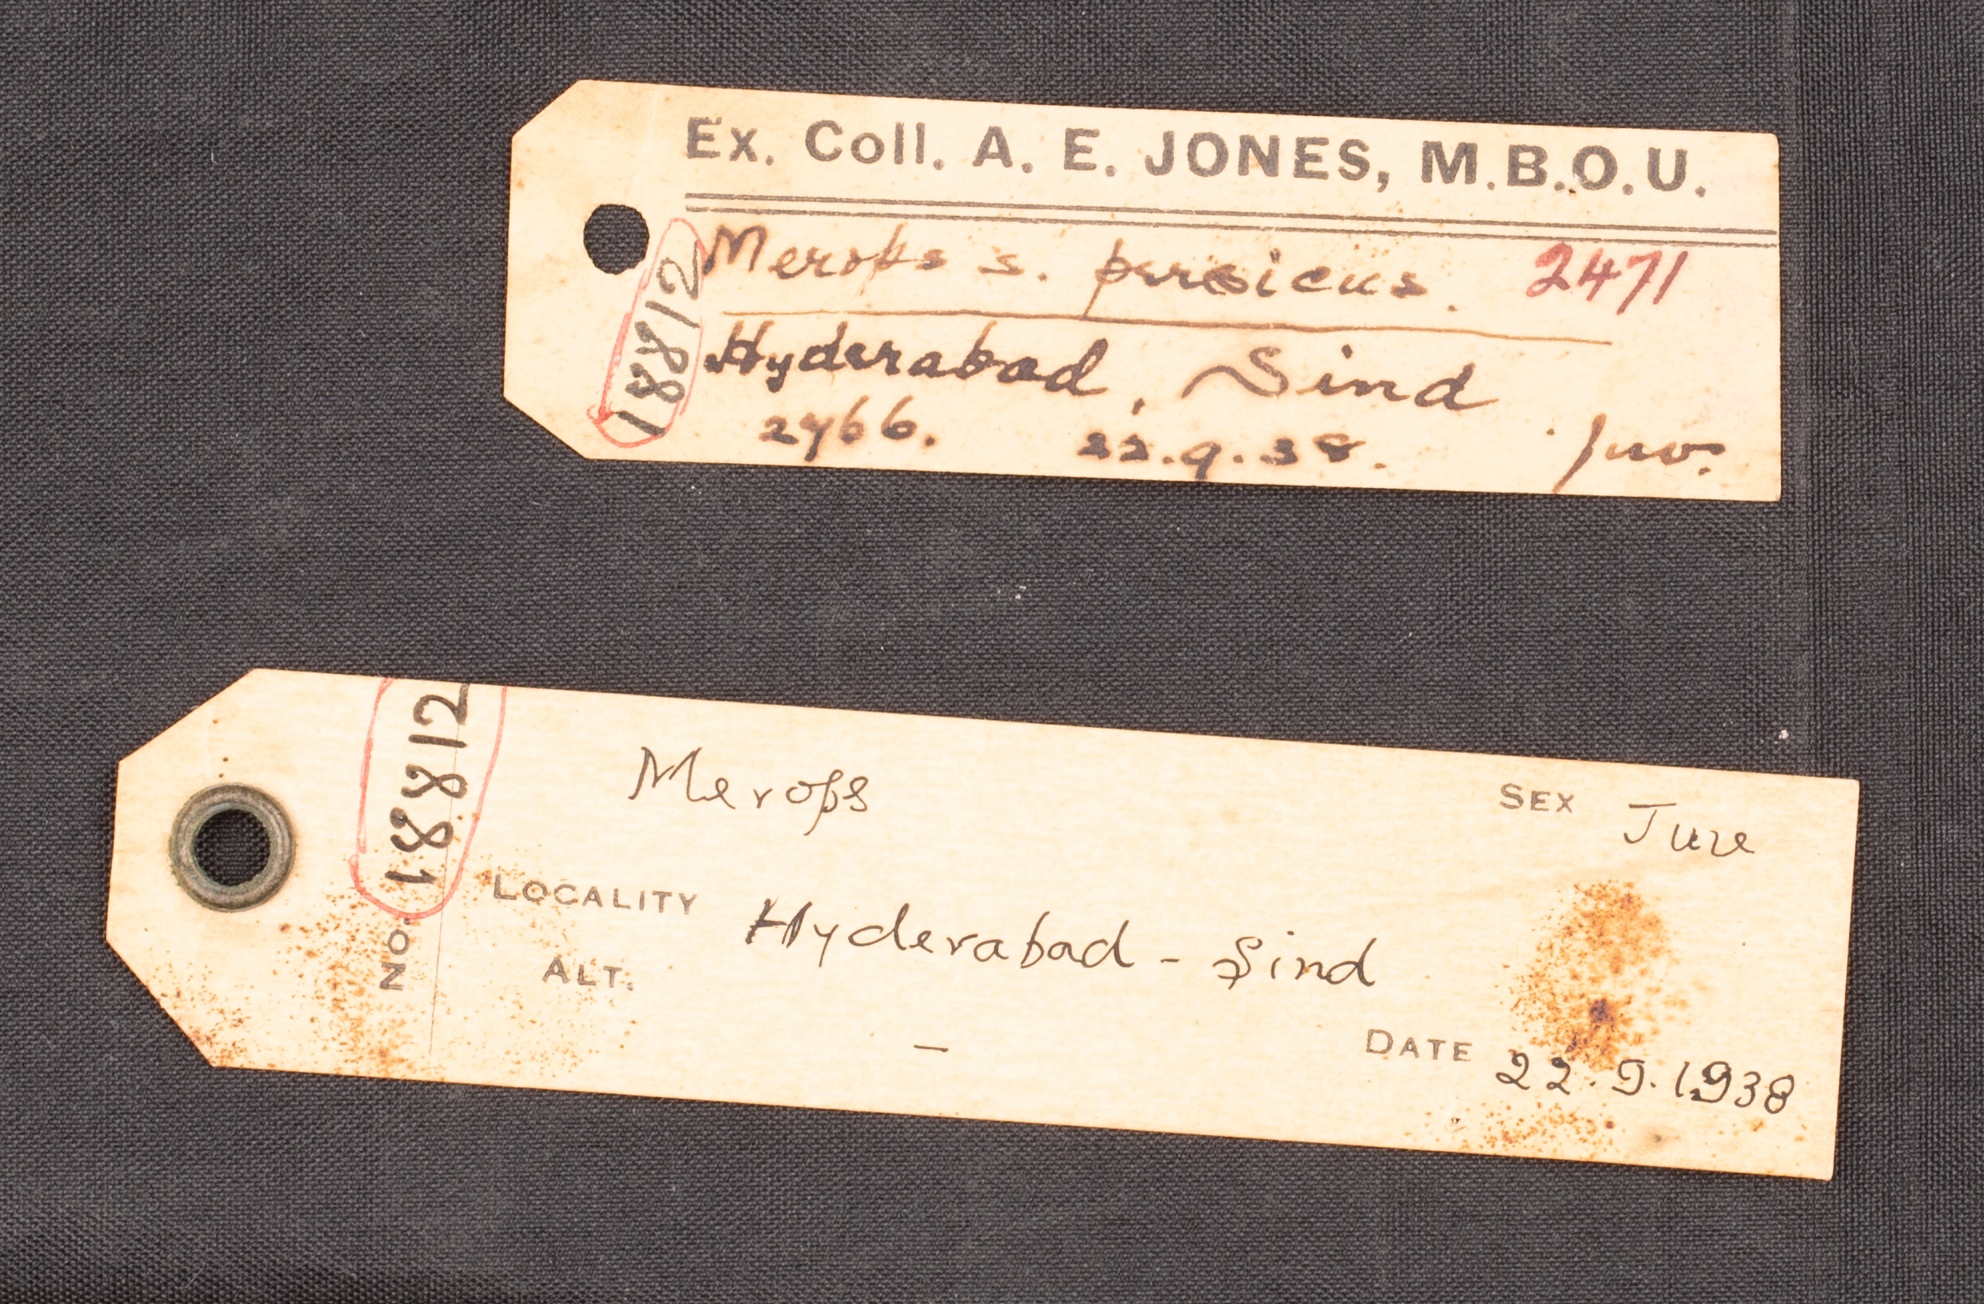 Ex. Coll. A. E. JONES, M.B.O.U.
18812
Merops s. persicus. 2471
Hyderabad, Sind
2766. 22.9.38. Juv.
18812
NO.
Merops
SEX Juve
LOCALITY Hyderabad - Sind
ALT. —
DATE 22.9.1938